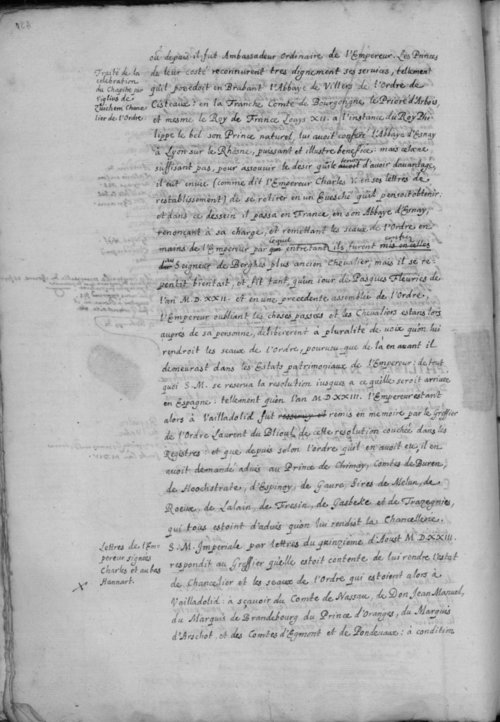 ou depuis il fut Ambassadeur ordinaire de l'Empereur. Les Princes
de leur costé reconnurent tres dignement ses services, tellement
qu'il possedoit en Brabant l'Abbaye de Villers de l'ordre de
Cisteaux: en la Franche Comté de Bourgongne, le Prioré d'Arbois,
et mesme le Roy de France Louys XII. a l'instance du Roy Phi-
lippe le bel son Prince naturel, luy avoit conferé l'Abbaye d'Esnay
à Lyon sur le Rhosne, puissant et illustre benefice: mais cela ne
suffisant pas, pour assouvir le desir qu'il avoit d'avoir davantage,
il eut envie (comme dit l'Empereur Charles V. en ses lettres de
restablissement) de se retirer en un Evesché qu'il pensoit obtenir.
et dans ce dessein il passa en France, en son Abbaye d'Esnay,
renonceant à sa charge, et remettant les seaux de l'Ordre en
mains de l'Empereur par entretant ils furent mis en celles
Seigneur de Berghes plus ancien Chevalier, mais il se re-
pentit bientost, et fit tant, qu'un iour de Pasques Fleuries de
l'an M.D.XXII. et en une precedente assemblée de l'Ordre,
l'Empereur oubliant les choses passées et les Chevaliers estans lors
auprès de sa personne, delibererent à pluralité de voix qu'on lui
rendroit les seaux de l'Ordre, pourvu que de là en avant il
demeurast dans les Estats patrimoniaux de l'Empereur: de tout
quoi S.M. se reserva la resolution iusques a ce qu'elle seroit arrivée
en Espagne: tellement qu'en l'an M.D.XXIII. l'Empereur estant
alors à Vailladolid fut remis en memoire par le Greffier
de l'Ordre Laurent du Blioul, de cette resolution couchée dans les
Registres: et que depuis selon l'ordre qu'il en avoit eu, il en
avoit demandé aduis au Prince de Chimay, Comtes de Buren,
de Hoochstrate, d'Espinoy, de Gavre, Sires de Melun, de
Roeux, de Lalain, de Fresin, de Gasbeke et de Trazegnies,
qui tous estoint d'aduis qu'on lui rendist la Chancellerie.
S.M. Imperiale par lettres du quinzième d'Aoust M.D.XXIII.
respondit au Greffier qu'elle estoit contente de lui rendre l'estat
de Chancelier et les seaux de l'Ordre qui estoient alors à
Vailladolid: à sçavoir du Comte de Nassau, de Don Jean Manuel,
du Marquis de Brandebourg du Prince d'Oranges, du Marquis
d'Arschot, et des Comtes d'Egmont et de Pondevaux: à condition
Traité de la
celebration
du Chapitre par
Viglius de
Zuichem Chance-
lier de l'Ordre
Lettres de l'Em-
pereur signées
Charles et au bas
Hannart.